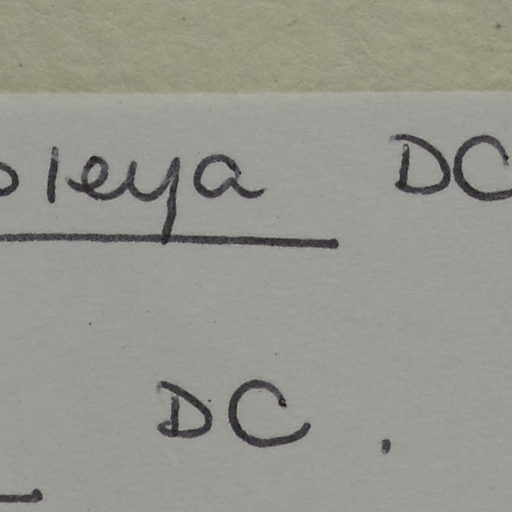 oleya DC
DC.